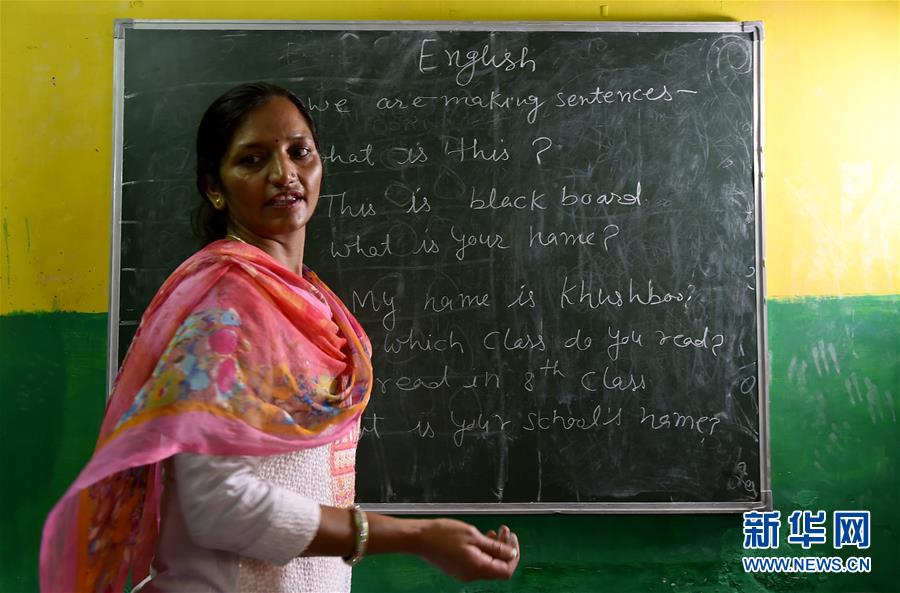 English
we are making sentences-
hat is this ?
This is black board.
what is your name?
My name is Khushboo?
which class do you read?
read in 8th class
t is your school's name?
新华网
WWW.NEWS.CN